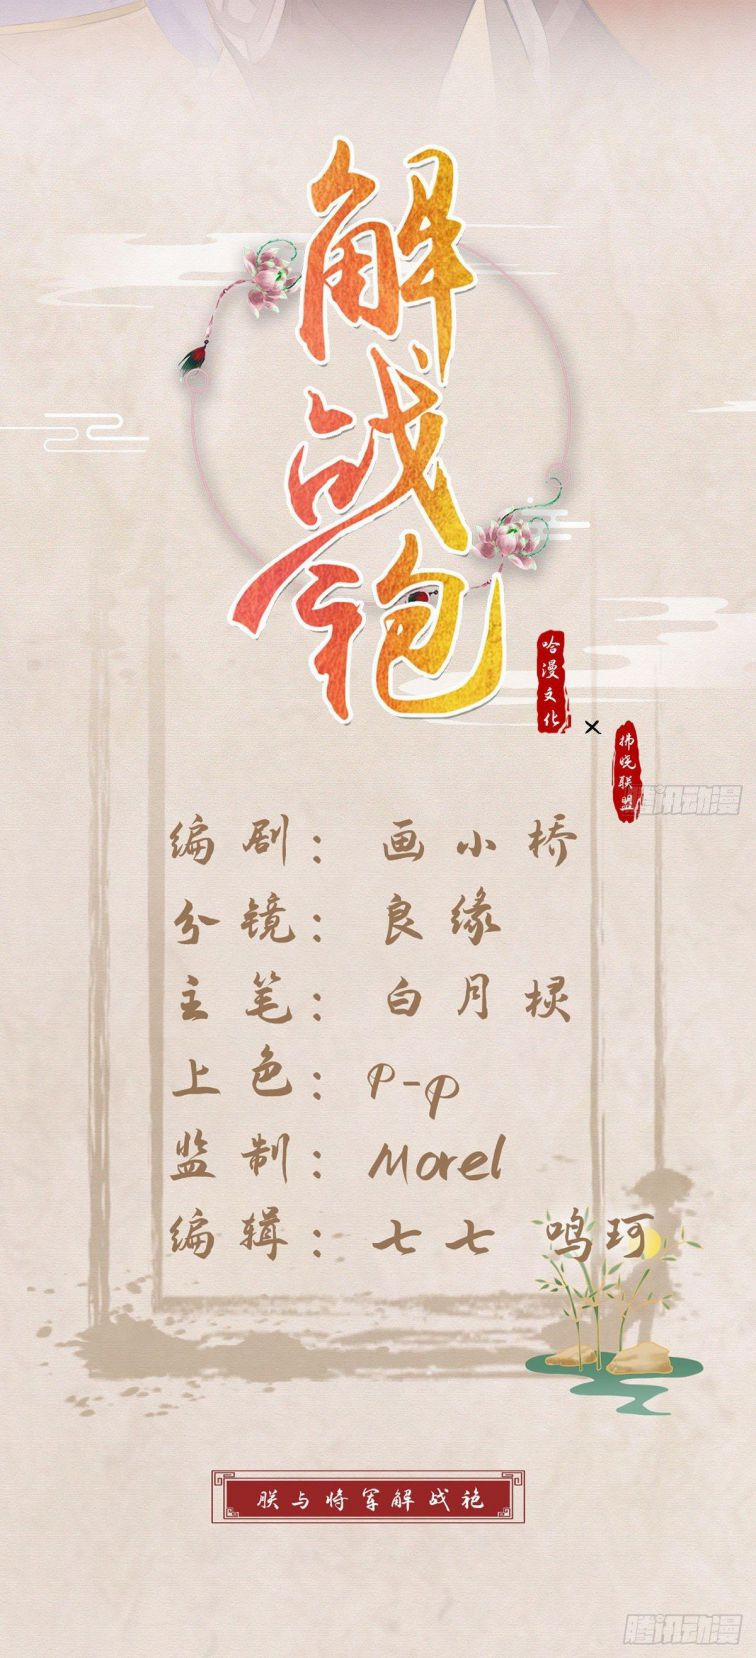 解战袍
哈漫文化
×
拂晓联盟
腾讯动漫
编剧：画小桥
分镜：良缘
主笔：白月棂
上色：p-p
监制：Morel
编辑：七七 鸣珂
朕与将军解战袍
腾讯动漫